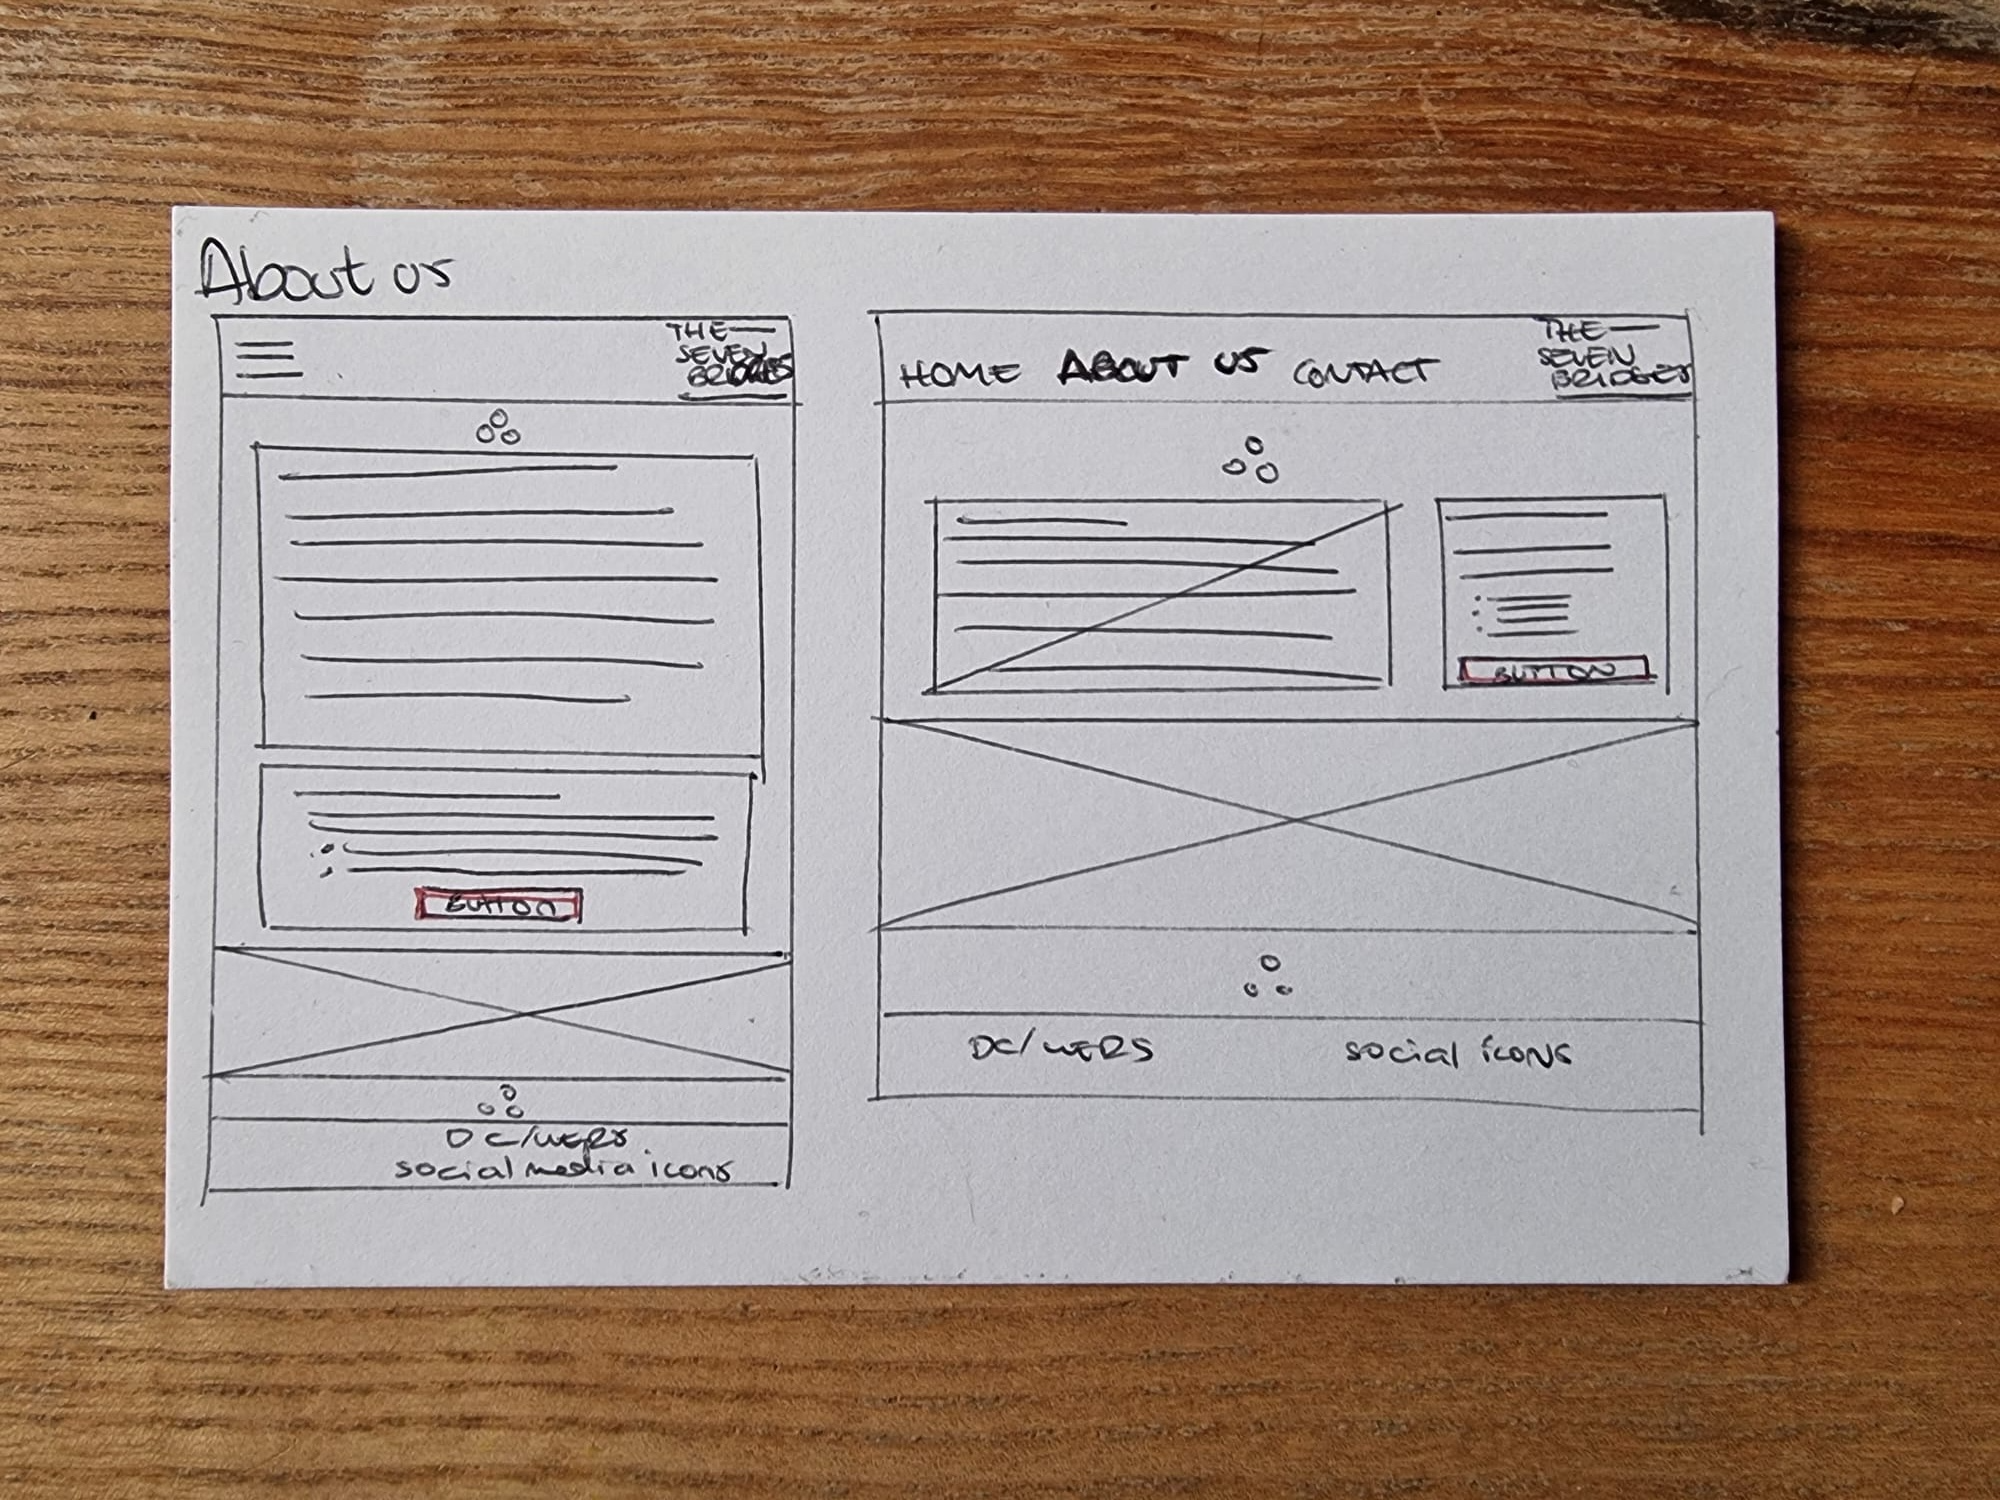 About us
THE
SEVEN
BRIDGES
BUTTON
DC/WERS
social media icons
HOME ABOUT US CONTACT
THE
SEVEN
BRIDGES
BUTTON
DC/WERS social icons